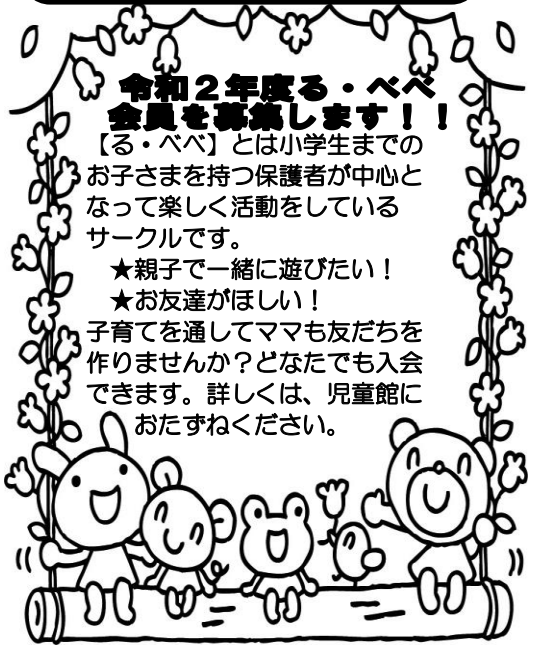 令和２年度る・べべ
会員を募集します！！
【る・べべ】とは小学生までの
お子さまを持つ保護者が中心と
なって楽しく活動をしている
サークルです。
★親子で一緒に遊びたい！
★お友達がほしい！
子育てを通してママも友だちを
作りませんか？どなたでも入会
できます。詳しくは、児童館に
おたずねください。